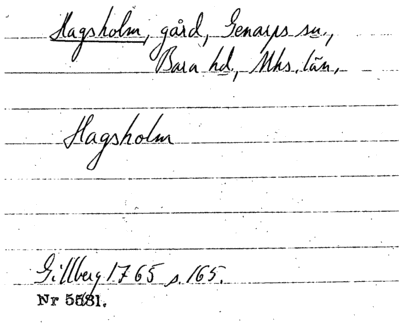 Hagsholm, gård, Genarps sn.,
Bara hd, Mhs. län.
Hagsholm
Gillberg 1765 s. 165.
Nr 5581.